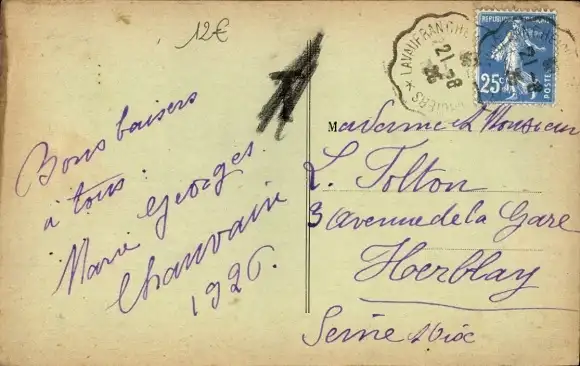 12€
Bons baisers
à tous.
Marie Georges
Chauvain
1926.
LAVAUFRANCHE
21-8
26
REPUBLIQUE FRANÇAISE
25c
POSTES
Madame et Monsieur
L. Tolton
3 avenue de la Gare
Herblay
Seine et Oise